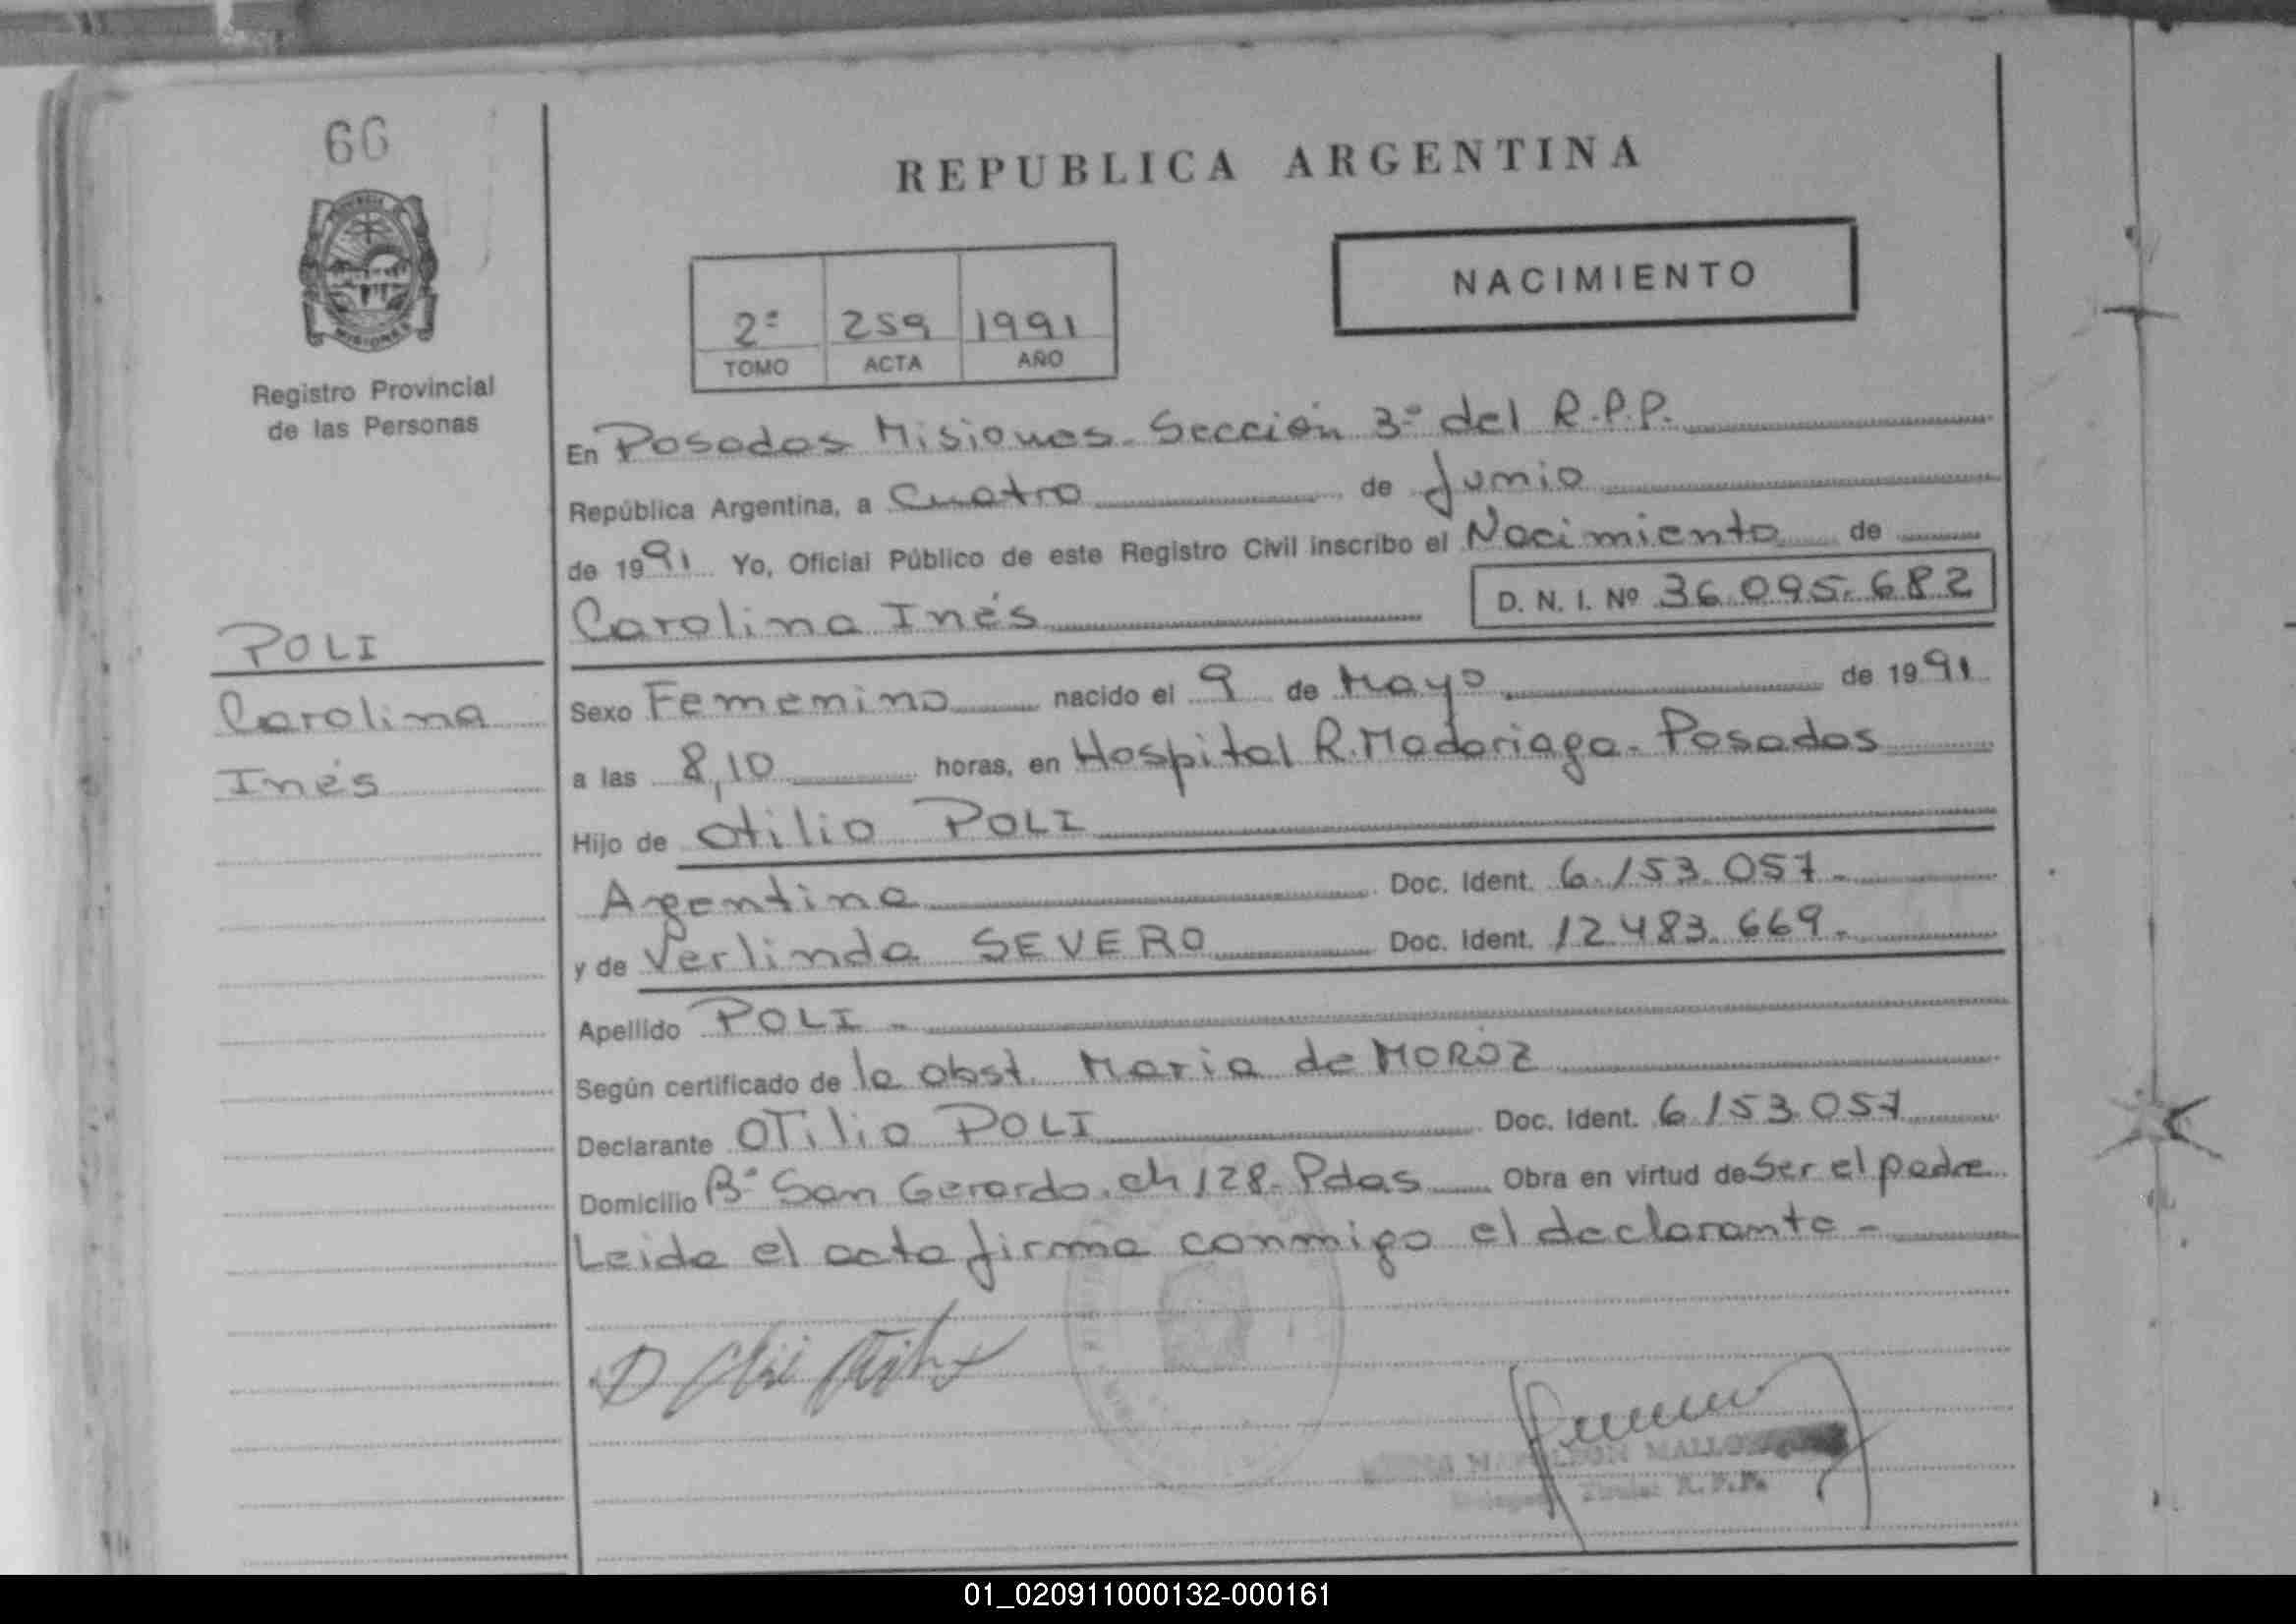 66
REPUBLICA ARGENTINA
NACIMIENTO
2º 259 1991
TOMO ACTA AÑO
MISIONES
Registro Provincial
de las Personas
En Posadas Misiones. Sección 3º del R.P.P.
República Argentina, a Cuatro de Junio
de 1991 Yo, Oficial Público de este Registro Civil inscribo el Nacimiento de
Carolina Inés D. N. I. Nº 36.095.682
POLI
Carolina
Inés
Sexo Femenino nacido el 9 de Mayo de 1991
a las 8,10 horas, en Hospital R. Madariaga - Posadas
Hijo de Otilio POLI
Argentina Doc. Ident. 6.153.057.-
y de Verlinda SEVERO Doc. Ident. 12.483.669.-
Apellido POLI -
Según certificado de la obst. Maria de MOROZ
Declarante OTilio POLI Doc. Ident. 6.153.057
Domicilio Bº San Gerardo. ch 128- Pdas Obra en virtud de Ser el padre
Leida el acta firma conmigo el declarante -
R.P.P.
01_020911000132-000161